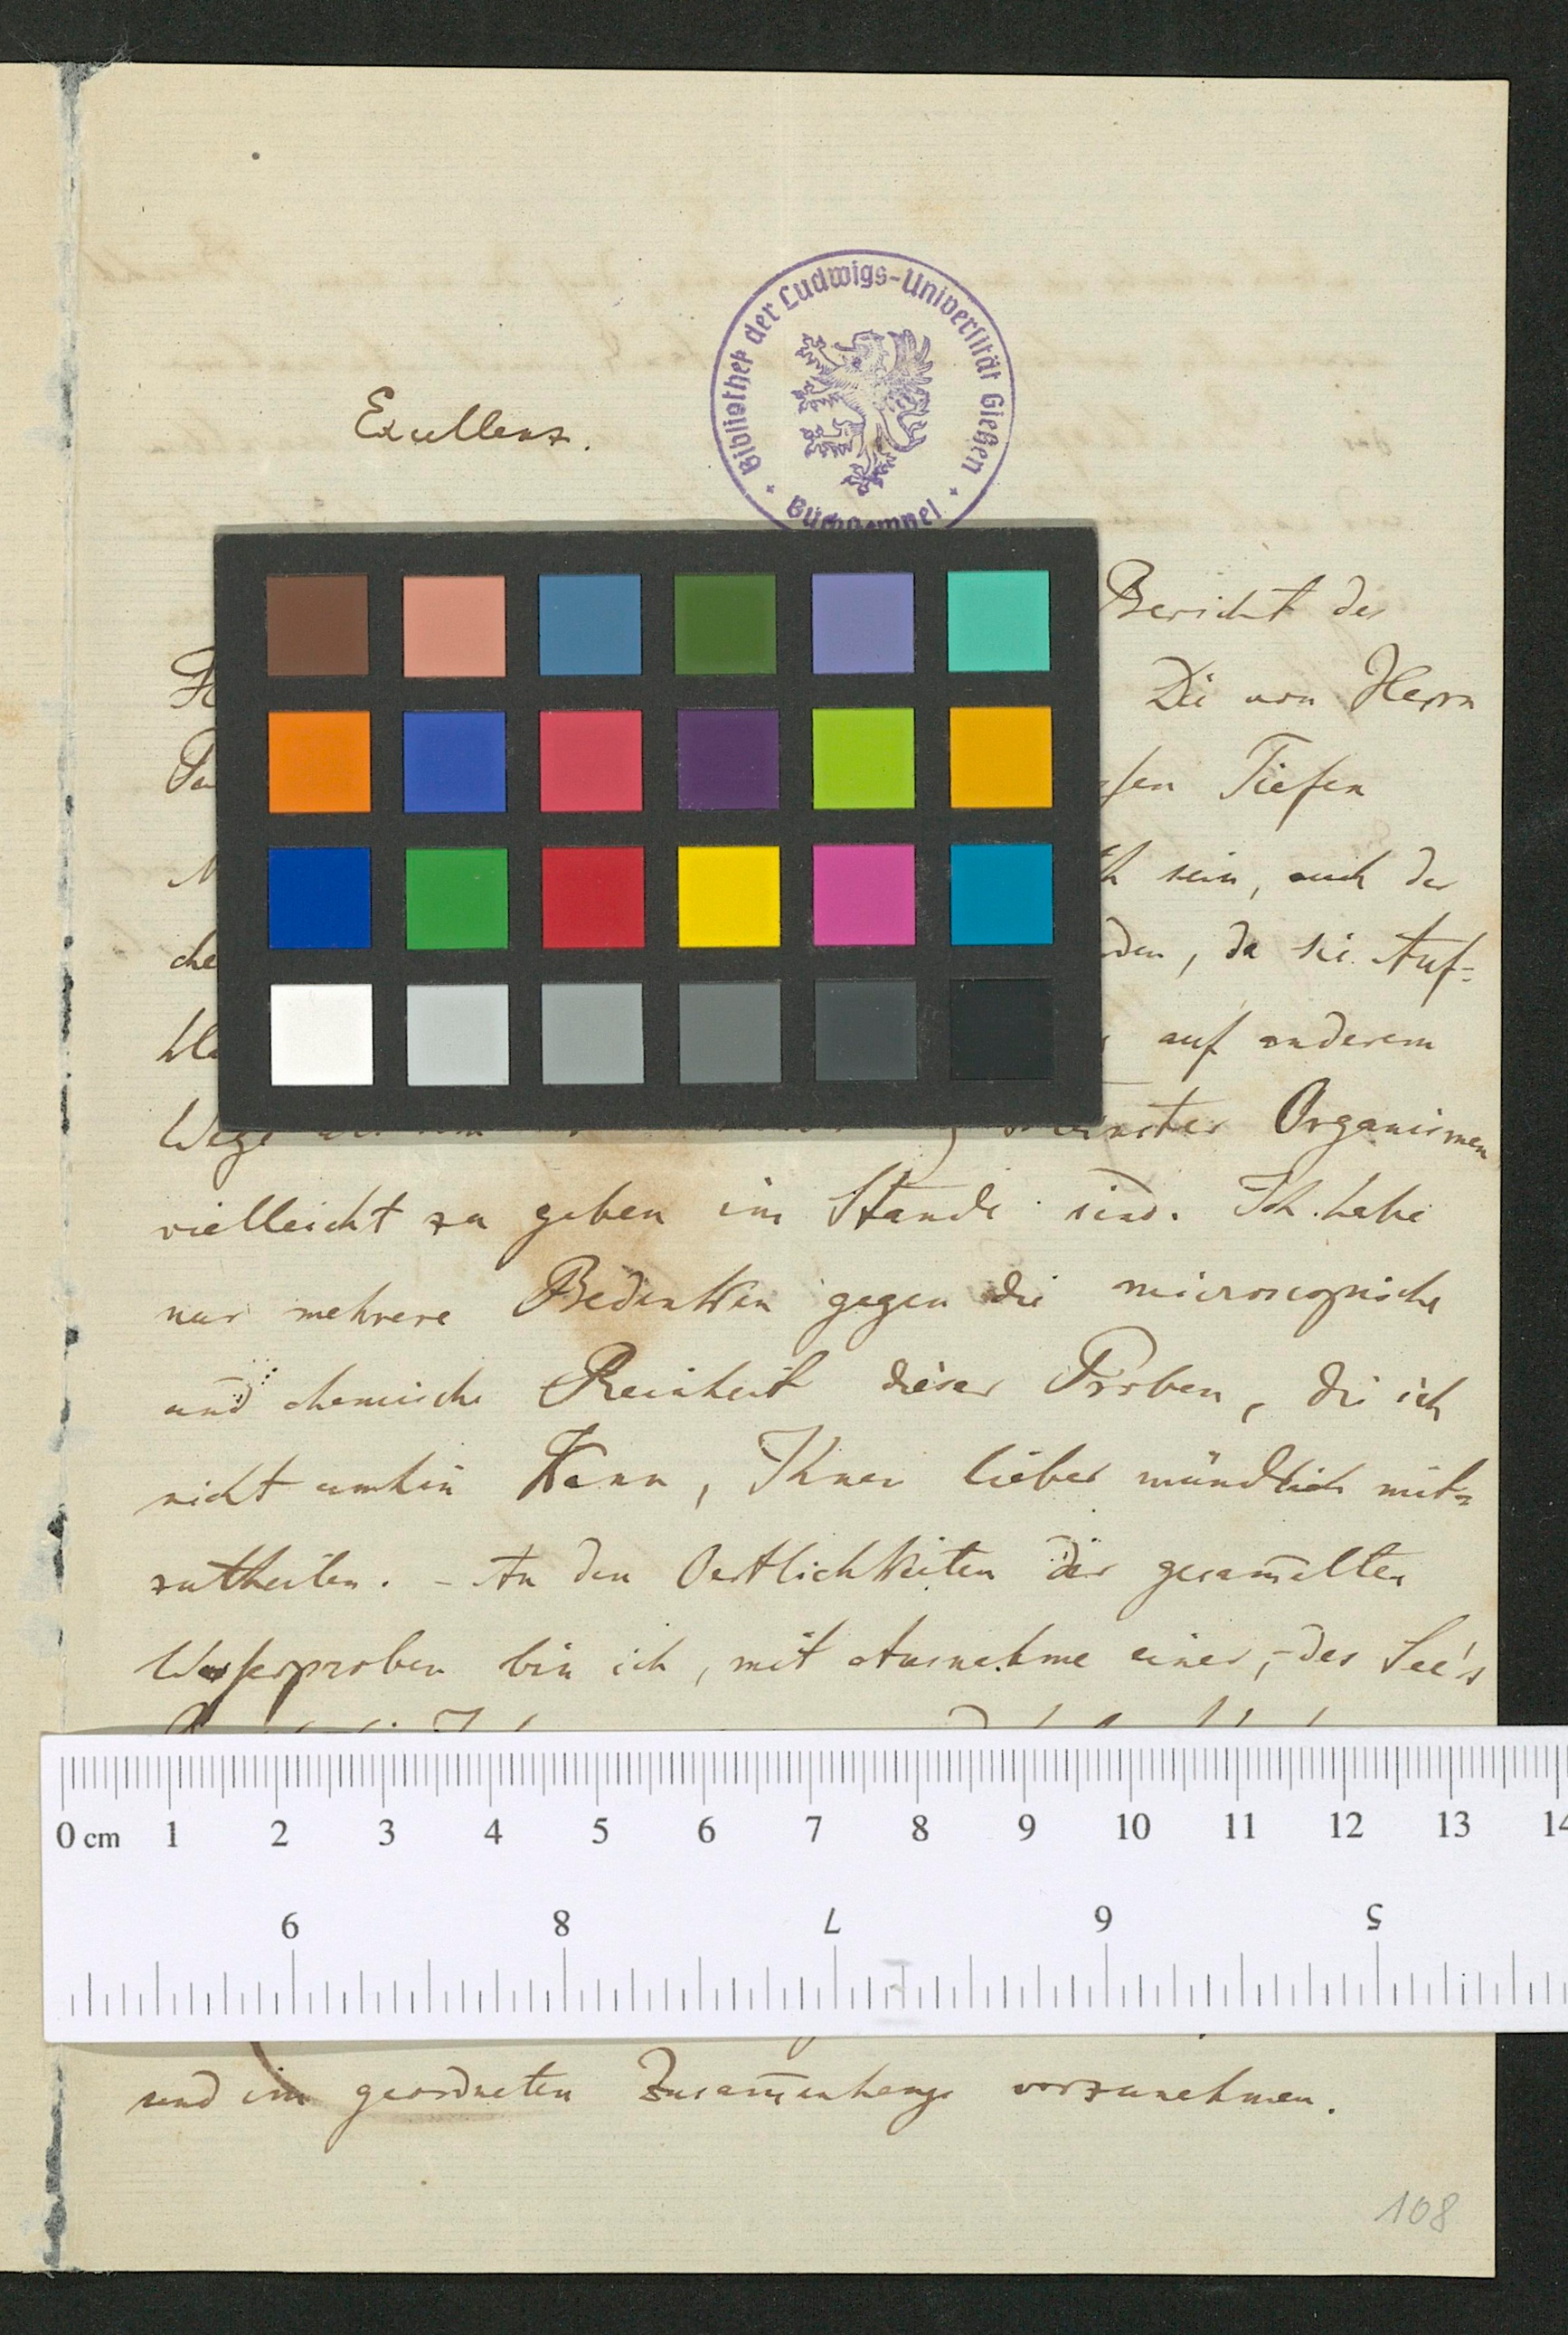 Bibliothek der Ludwigs-Universität Gießen
Excellenz.
Bericht des
Die von Herrn
Tiefen
sein, auch der
da sie Auf-
auf anderem
Wege Organismen
vielleicht zu geben im Stande sind. Ich habe
nur mehrere Bedenken gegen die microscopische
und chemische Reinheit dieser Proben, die ich
nicht umhin kann, Ihnen lieber mündlich mit-
zutheilen. – An den Oertlichkeiten der gesam̅elten
Wasserproben bin ich, mit Ausnahme einer, – des See's
0 cm 1 2 3 4 5 6 7 8 9 10 11 12 13 14
9 8 7 6 5
und im geordneten Zusam̅enhange vorzunehmen.
108